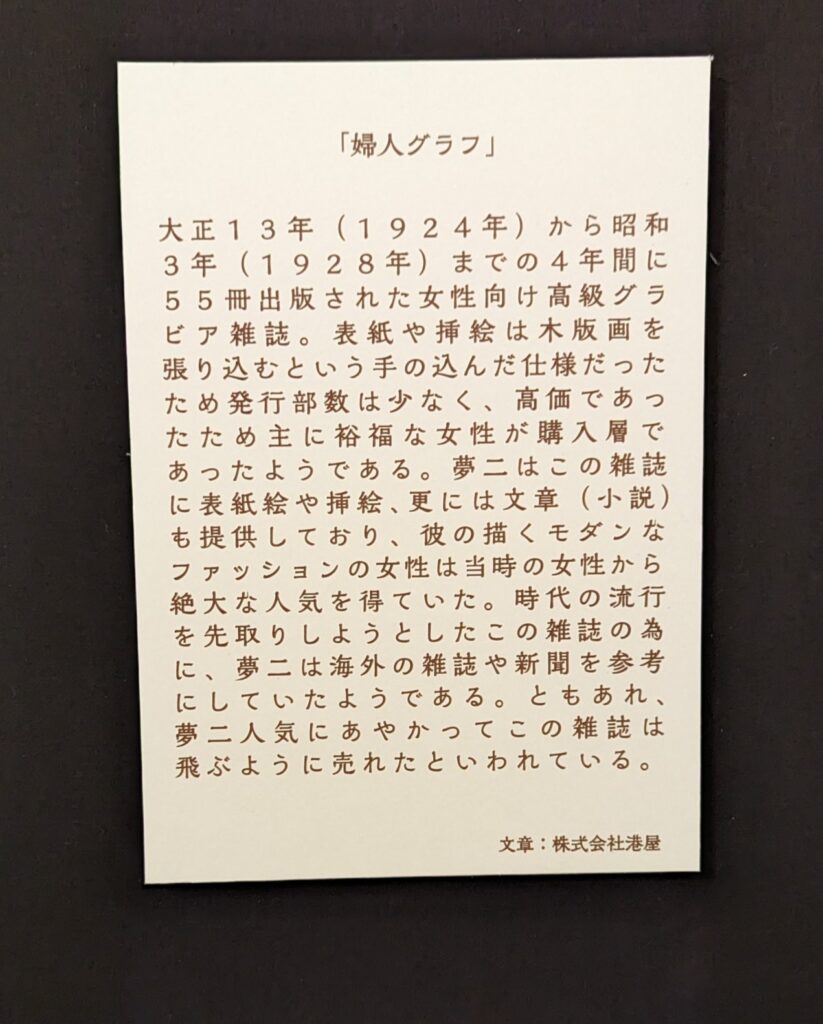 「婦人グラフ」
大正１３年（１９２４年）から昭和
３年（１９２８年）までの４年間に
５５冊出版された女性向け高級グラ
ビア雑誌。表紙や挿絵は木版画を
張り込むという手の込んだ仕様だった
ため発行部数は少なく、高価であっ
たため主に裕福な女性が購入層で
あったようである。夢二はこの雑誌
に表紙絵や挿絵、更には文章（小説）
も提供しており、彼の描くモダンな
ファッションの女性は当時の女性から
絶大な人気を得ていた。時代の流行
を先取りしようとしたこの雑誌の為
に、夢二は海外の雑誌や新聞を参考
にしていたようである。ともあれ、
夢二人気にあやかってこの雑誌は
飛ぶように売れたといわれている。
文章：株式会社港屋